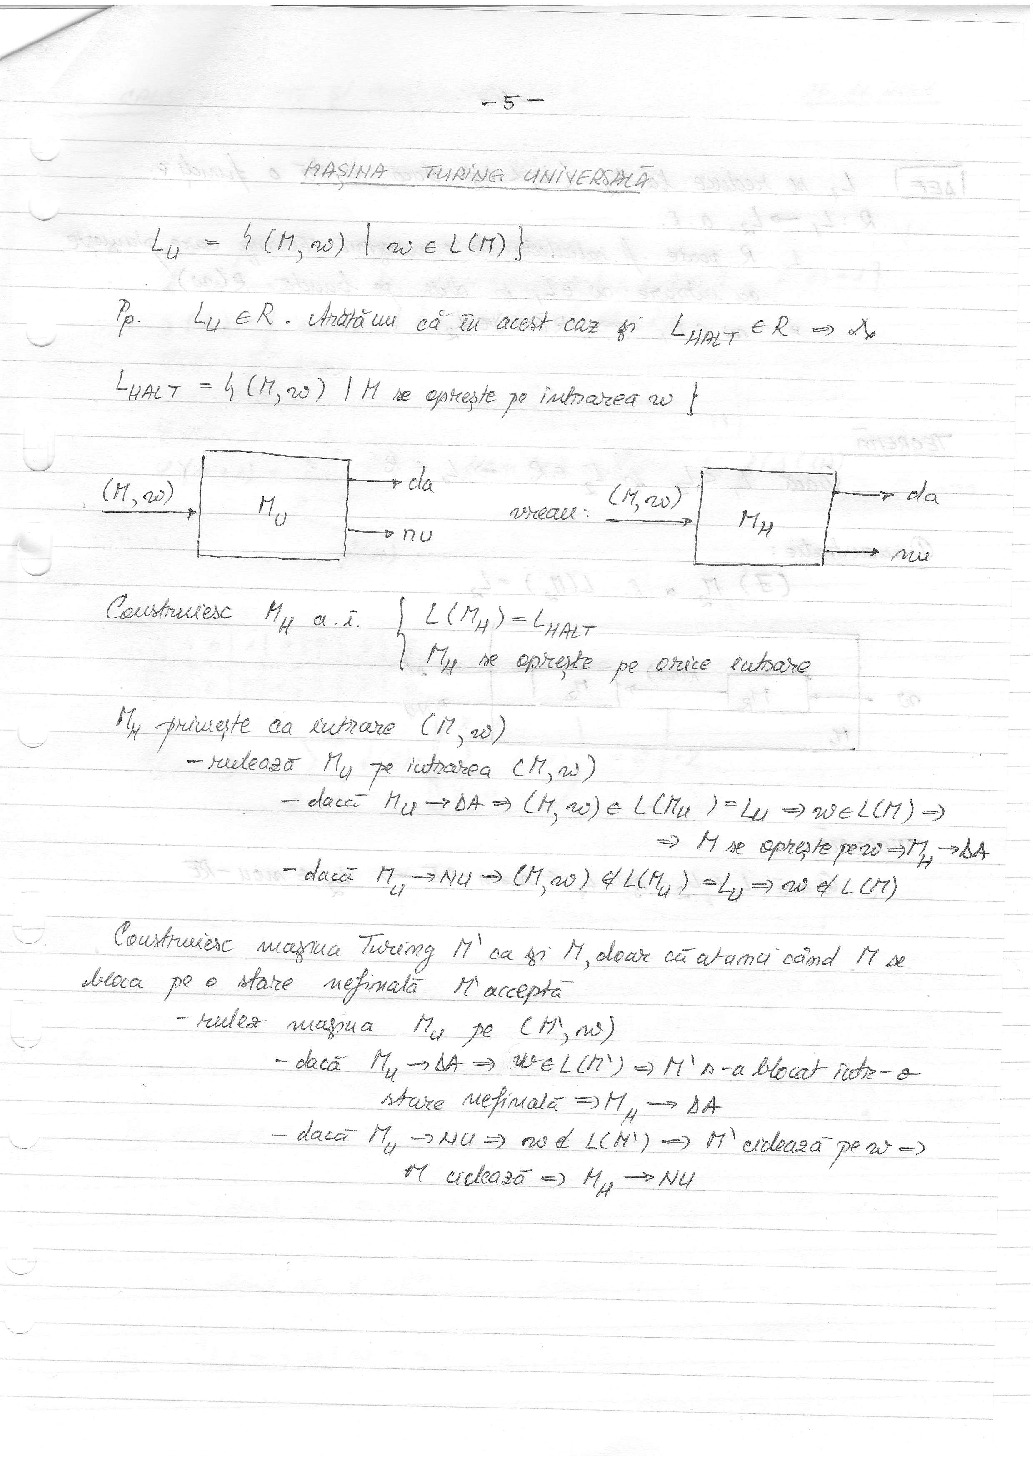 -5-
MAȘINA TURING UNIVERSALĂ
L_U = {(M,w) | w ∈ L(M)}
Pp. L_U ∈ R. Arătăm că în acest caz și L_HALT ∈ R ⇒
L_HALT = {(M,w) | M se oprește pe intrarea w}
(M,w) M_U da nu
vreau: (M,w) M_H da nu
Construiesc M_H a.î. { L(M_H) = L_HALT
M_H se oprește pe orice intrare
M_H primește ca intrare (M,w)
- rulează M_U pe intrarea (M,w)
- dacă M_U → DA ⇒ (M,w) ∈ L(M_U) = L_U ⇒ w ∈ L(M) ⇒
⇒ M se oprește pe w ⇒ M_H → DA
- dacă M_U → NU ⇒ (M,w) ∉ L(M_U) = L_U ⇒ w ∉ L(M)
Construiesc mașina Turing M' ca și M, doar că atunci când M se
bloca pe o stare nefinală M' acceptă
- rulez mașina M_U pe (M',w)
- dacă M_U → DA ⇒ w ∈ L(M') ⇒ M' s-a blocat într-o
stare nefinală ⇒ M_H → DA
- dacă M_U → NU ⇒ w ∉ L(M') ⇒ M' ciclează pe w ⇒
M ciclează ⇒ M_H → NU